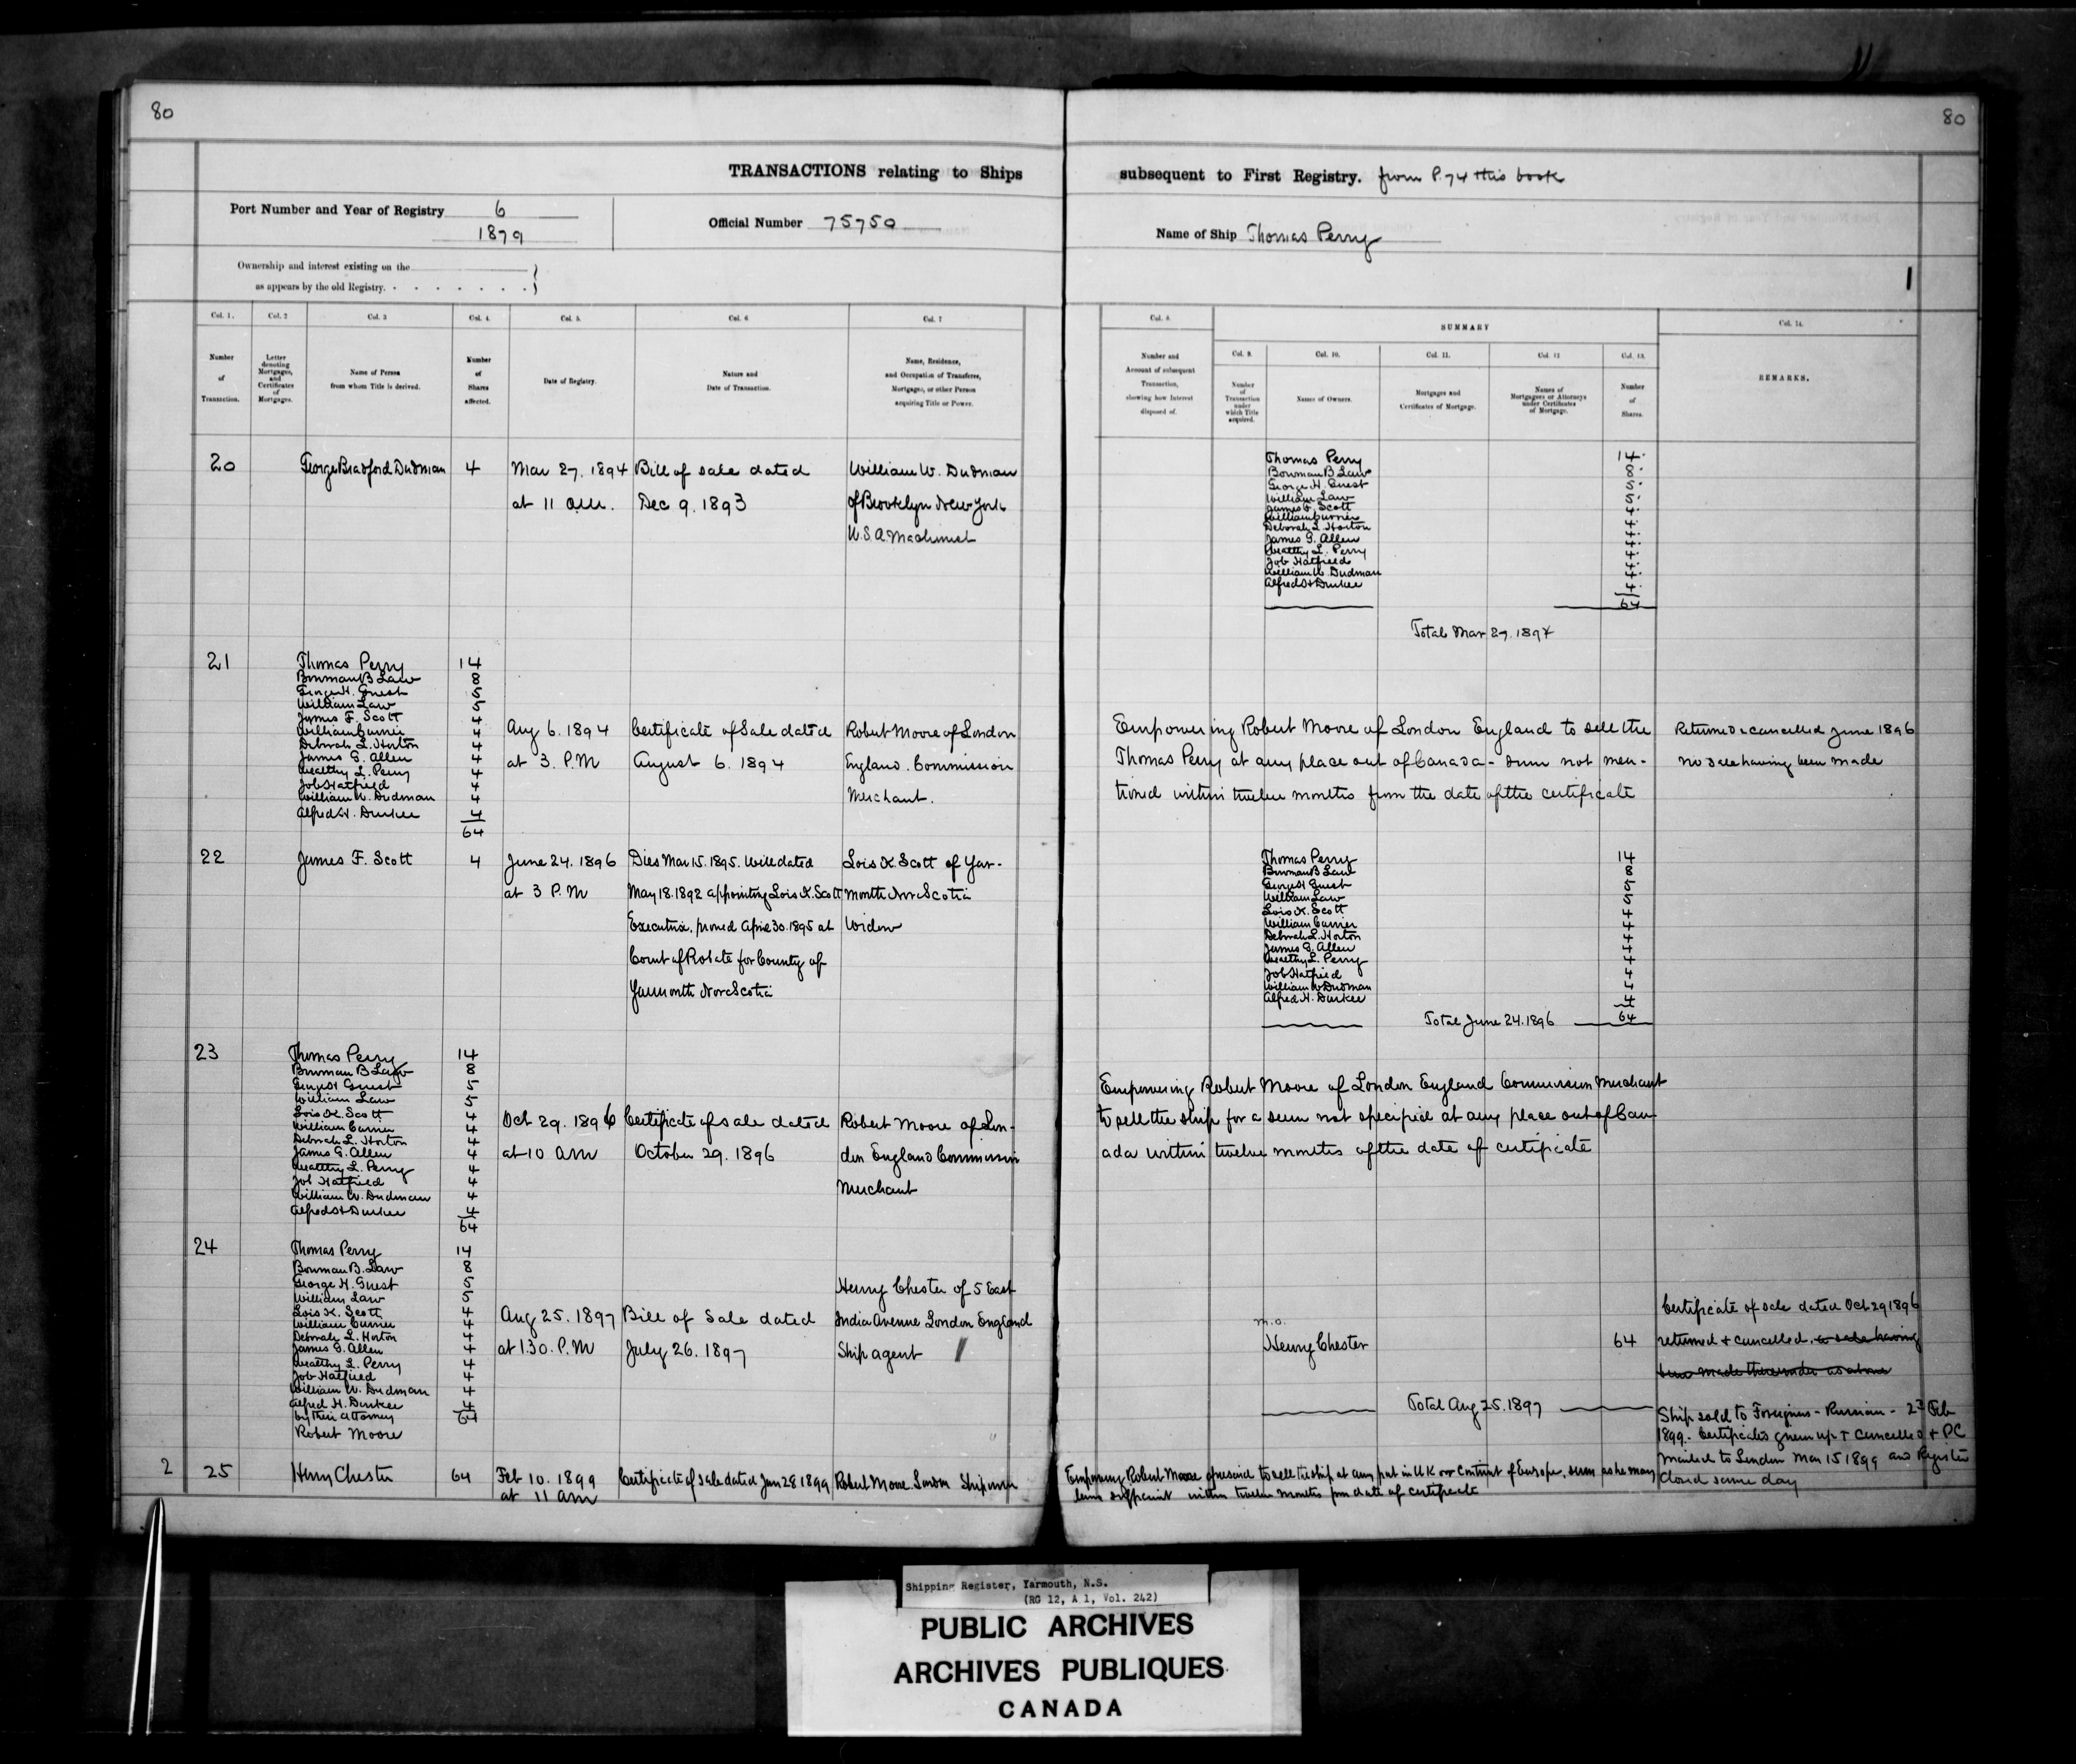 80
80
TRANSACTIONS relating to Ships
subsequent to First Registry. from P. 74 this book
Port Number and Year of Registry 6
1879
Official Number 75750
Name of Ship Thomas Perry
Ownership and interest existing on the
as appears by the old Registry.
1
Col. 1.
Number
of
Transaction.
Col. 2
Letter
denoting
Mortgages,
and
Certificates
of
Mortgages.
Col. 3
Name of Person
from whom Title is derived.
Col. 4.
Number
of
Shares
affected.
Col. 5.
Date of Registry.
Col. 6
Nature and
Date of Transaction.
Col. 7
Name, Residence,
and Occupation of Transferee,
Mortgagee, or other Person
acquiring Title or Power.
Col. 8.
Number and
Account of subsequent
Transaction,
showing how Interest
disposed of.
SUMMARY
Col. 9.
Number
of
Transaction
under
which Title
acquired.
Col. 10.
Names of Owners.
Col. 11.
Mortgages and
Certificates of Mortgage.
Col. 12
Names of
Mortgagees or Attorneys
under Certificates
of Mortgage.
Col. 13.
Number
of
Shares.
Col. 14.
REMARKS.
20
George Bradford Dudman 4
Mar 27. 1894
at 11 a.m.
Bill of sale dated
Dec 9. 1893
William W. Dudman
of Brooklyn New York
U.S.A. Machinist
Thomas Perry 14
Bowman B Law 8
George H. Guest 5
William Law 5
James F. Scott 4
William Currier 4
Deborah L. Horton 4
James G. Allen 4
Wealthy L. Perry 4
Job Hatfield 4
William W. Dudman 4
Alfred H Durkee 4
64
Total Mar 27. 1894
21
Thomas Perry 14
Bowman B Law 8
George H. Guest 5
William Law 5
James F. Scott 4
William Currier 4
Deborah L. Horton 4
James G. Allen 4
Wealthy L. Perry 4
Job Hatfield 4
William W. Dudman 4
Alfred H. Durkee 4
64
Aug 6. 1894
at 3. P.M
Certificate of Sale dated
August 6. 1894
Robert Moore of London
England. Commission
Merchant.
Empowering Robert Moore of London England to sell the
Thomas Perry at any place out of Canada - sum not men-
tioned within twelve months from the date of the certificate
Returned & cancelled June 1896
no sale having been made
22
James F. Scott 4
June 24. 1896
at 3 P.M
Died Mar 15. 1895. Will dated
May 18. 1892 appointing Lois K. Scott
Executrix. proved April 30. 1895 at
Court of Probate for County of
Yarmouth Nova Scotia
Lois K. Scott of Yar-
mouth Nova Scotia
Widow
Thomas Perry 14
Bowman B Law 8
George H Guest 5
William Law 5
Lois K. Scott 4
William Currier 4
Deborah L. Horton 4
James G. Allen 4
Wealthy L. Perry 4
Job Hatfield 4
William W Dudman 4
Alfred H. Durkee 4
64
Total June 24. 1896
23
Thomas Perry 14
Bowman B Law 8
George H Guest 5
William Law 5
Lois K. Scott 4
William Currier 4
Deborah L. Horton 4
James G. Allen 4
Wealthy L. Perry 4
Job Hatfield 4
William W. Dudman 4
Alfred H Durkee 4
64
Oct 29. 1896
at 10 am
Certificate of sale dated
October 29. 1896
Robert Moore of Lon-
don England Commission
Merchant
Empowering Robert Moore of London England Commission Merchant
to sell the ship for a sum not specified at any place out of Can-
ada within twelve months of the date of certificate
24
Thomas Perry 14
Bowman B. Law 8
George H. Guest 5
William Law 5
Lois K. Scott 4
William Currier 4
Deborah L. Horton 4
James G. Allen 4
Wealthy L. Perry 4
Job Hatfield 4
William W. Dudman 4
Alfred H. Durkee 4
by their attorney 64
Robert Moore
Aug 25. 1897
at 1.30. P.M
Bill of Sale dated
July 26. 1897
Henry Chester of 5 East
India Avenue London England
Ship agent
m.o.
Henry Chester 64
Total Aug 25. 1897
Certificate of sale dated Oct 29 1896
returned & cancelled. a sale having
been made thereunder as above
Ship sold to Foreigners - Russian - 23 Feb
1899. Certificates given up & cancelled & PC
mailed to London Mar 15 1899 and Register
closed same day
2
25
Henry Chester 64
Feb 10. 1899
at 11 am
Certificate of sale dated Jan 28 1899
Robert Moore London Shipowner
Empowering Robert Moore aforesaid to sell the ship at any port in U K or Continent of Europe, sum as he may
deem sufficient within twelve months from date of certificate
Shipping Register, Yarmouth, N.S.
(RG 12, A 1, Vol. 242)
PUBLIC ARCHIVES
ARCHIVES PUBLIQUES
CANADA